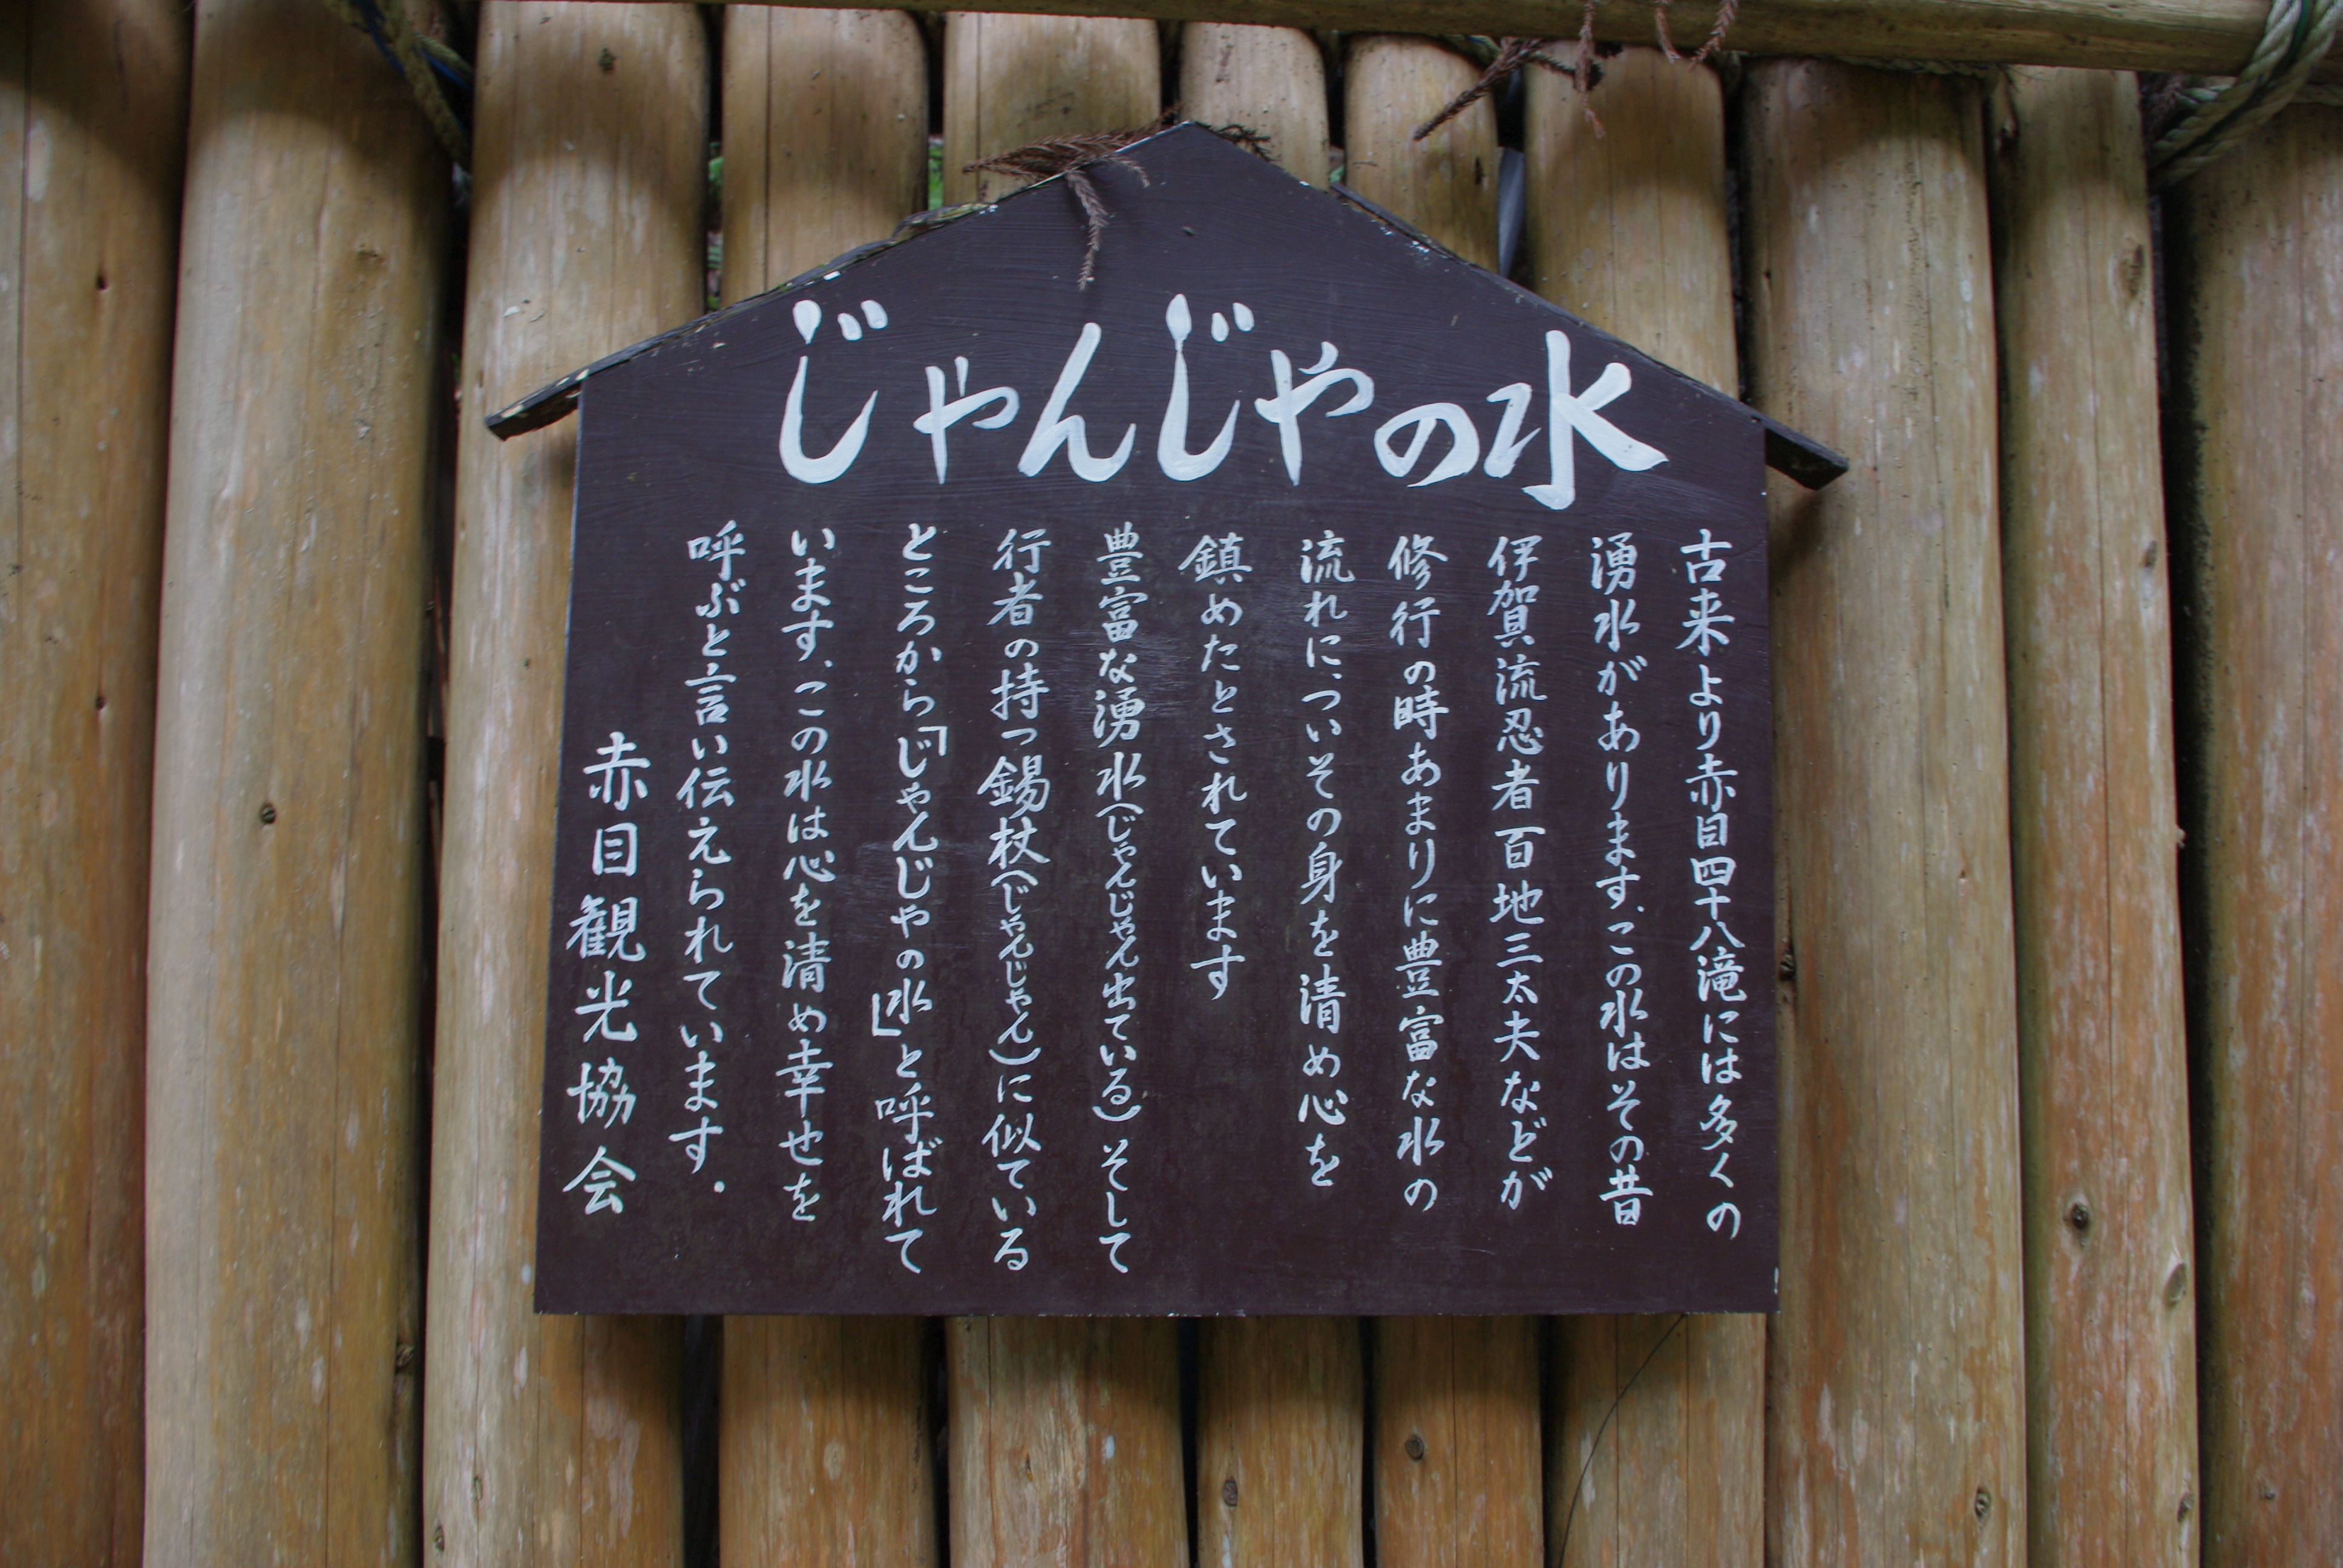 じゃんじゃの水
古来より赤目四十八滝には多くの
湧水があります、この水はその昔
伊賀流忍者百地三太夫などが
修行の時あまりに豊富な水の
流れに、ついその身を清め心を
鎮めたとされています
豊富な湧水(じゃんじゃん出ている)そして
行者の持つ錫杖(じゃんじゃん)に似ている
ところから「じゃんじゃの水」と呼ばれて
います、この水は心を清め幸せを
呼ぶと言い伝えられています.
赤目観光協会